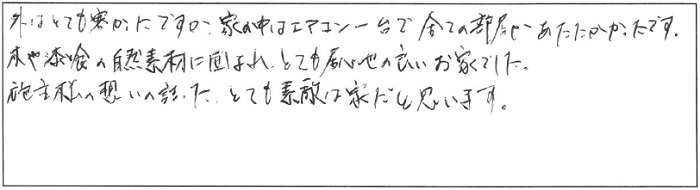 外はとても寒かったですが、家の中はエアコン一台で全ての部屋があたたかかったです。
木や漆喰の自然素材に囲まれ、とても居心地の良いお家でした。
施主様の想いの詰った、とても素敵な家だと思います。